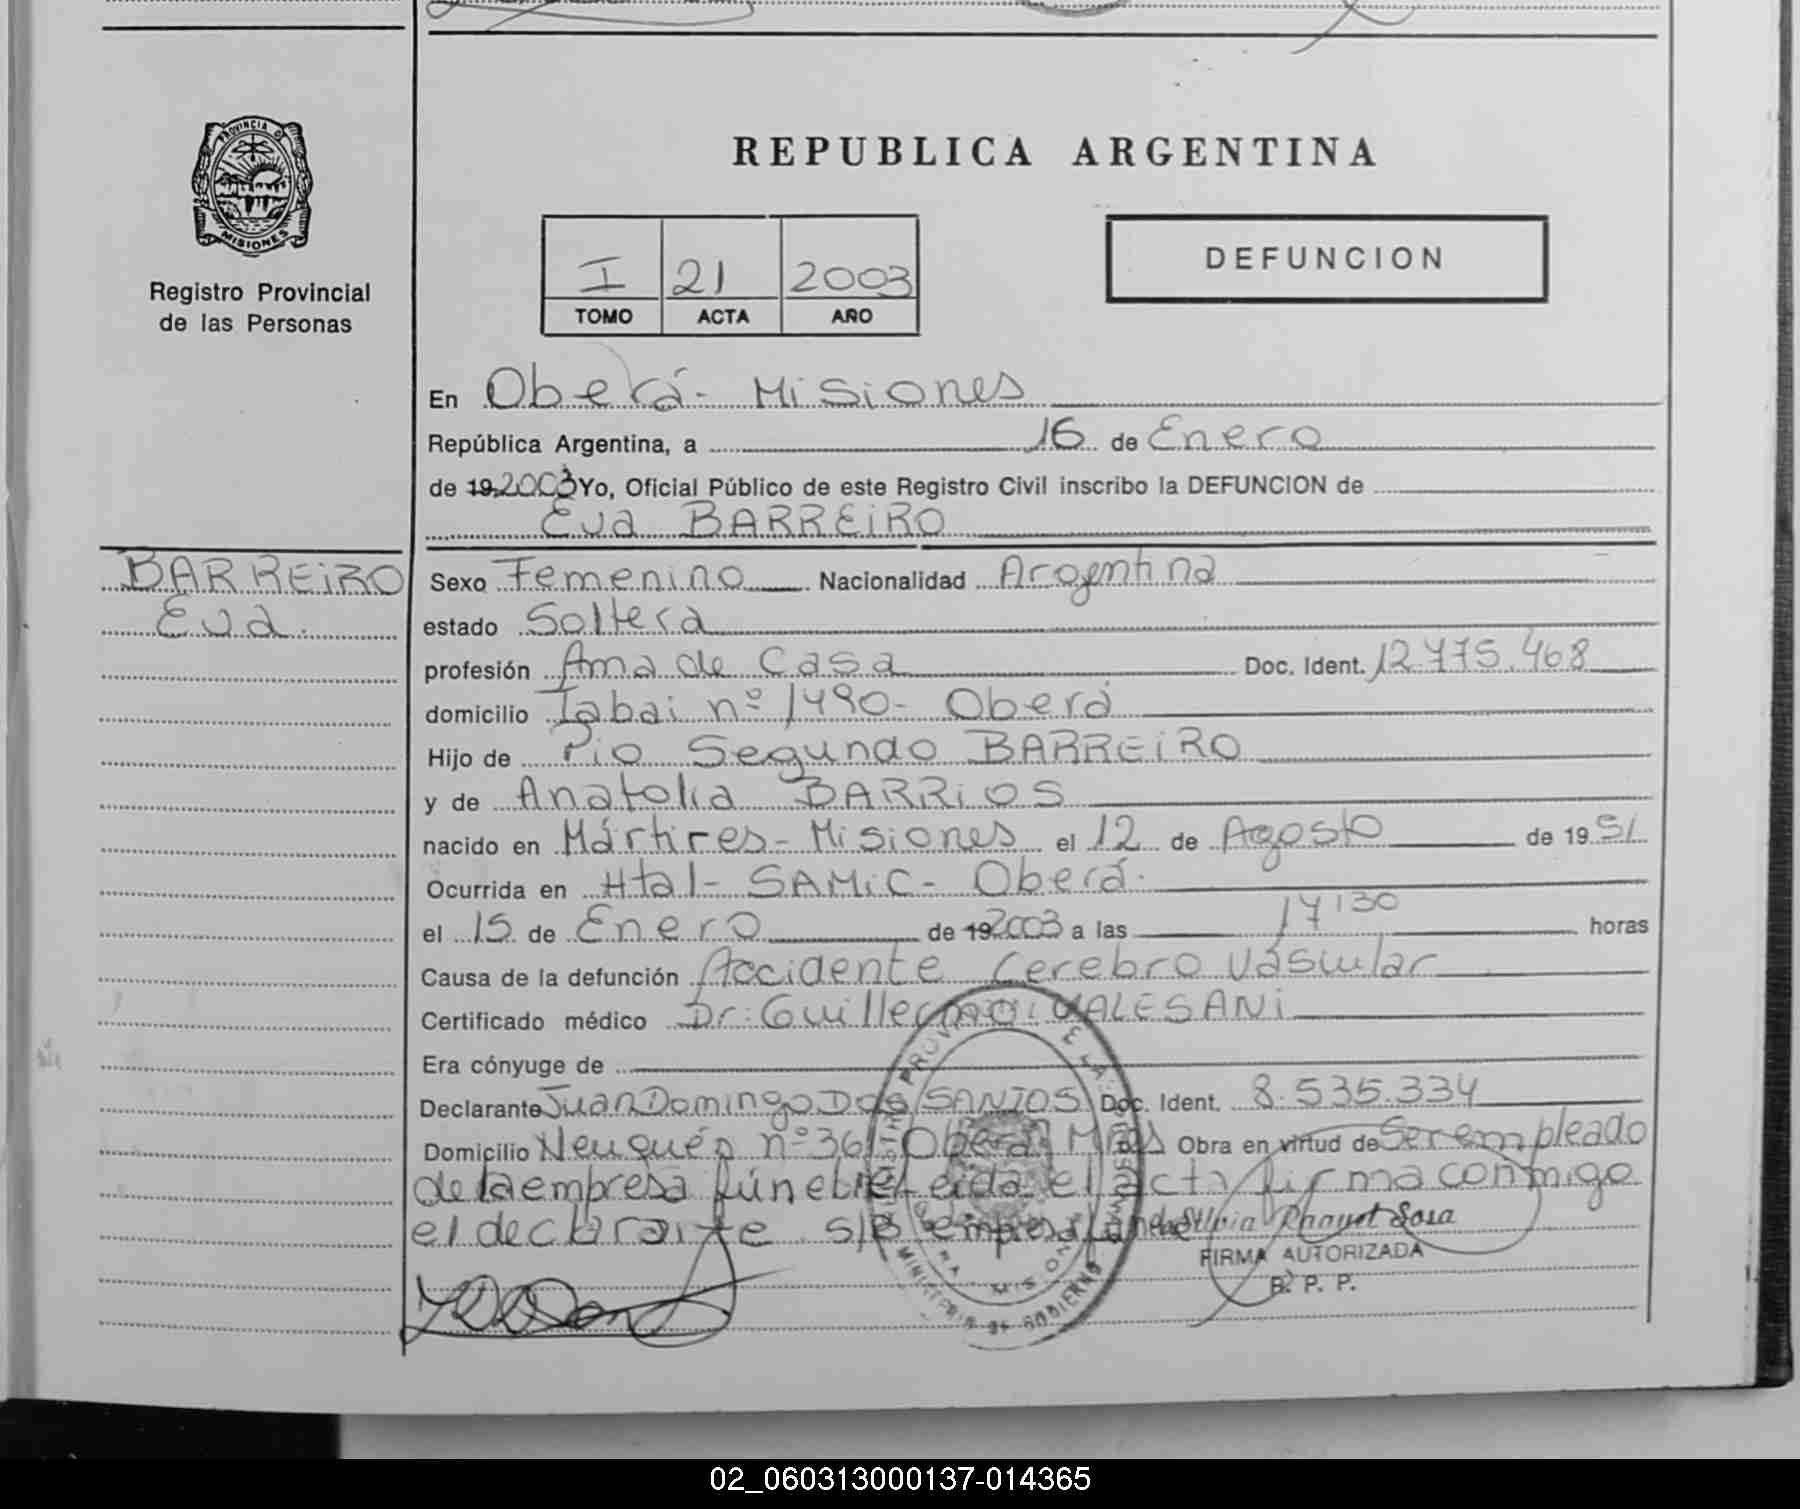 PROVINCIA D
MISIONES
Registro Provincial
de las Personas
REPUBLICA ARGENTINA
I 21 2003
TOMO ACTA AÑO
DEFUNCION
En Oberá - Misiones
República Argentina, a 16 de Enero
de 19 2003 Yo, Oficial Público de este Registro Civil inscribo la DEFUNCION de
Eva BARREIRO
BARREIRO
Eva
Sexo Femenino Nacionalidad Argentina
estado Soltera
profesión Ama de Casa Doc. Ident. 12.775.468
domicilio Iabai nº 1490 - Oberá
Hijo de Pio Segundo BARREIRO
y de Anatolia BARRIOS
nacido en Mártires - Misiones el 12 de Agosto de 19
Ocurrida en Htal - SAMiC - Oberá.
el 15 de Enero de 19 2003 a las 17:30 horas
Causa de la defunción Accidente Cerebro Vascular
Certificado médico Dr: Guillermo VALESANi
Era cónyuge de
Declarante Juan Domingo DOS SANTOS Doc. Ident. 8.535.334
Domicilio Neuquén nº 361 Oberá Mnes Obra en virtud de Ser empleado
de la empresa fúnebre Leida el acta firma conmigo
el declarante. s/R empresa fúnebre
Silvia Raquel Sosa
FIRMA AUTORIZADA
R. P. P.
MINISTERIO DE GOBIERNO
02_060313000137-014365